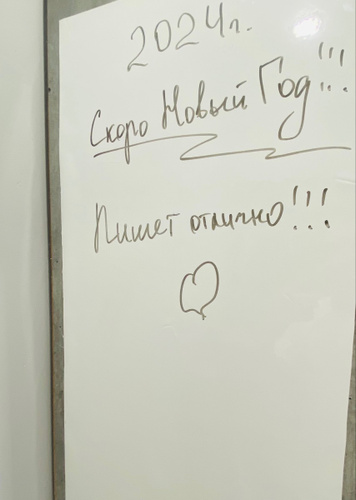 2024г.
Скоро Новый Год!!!
Пишет отлично!!!